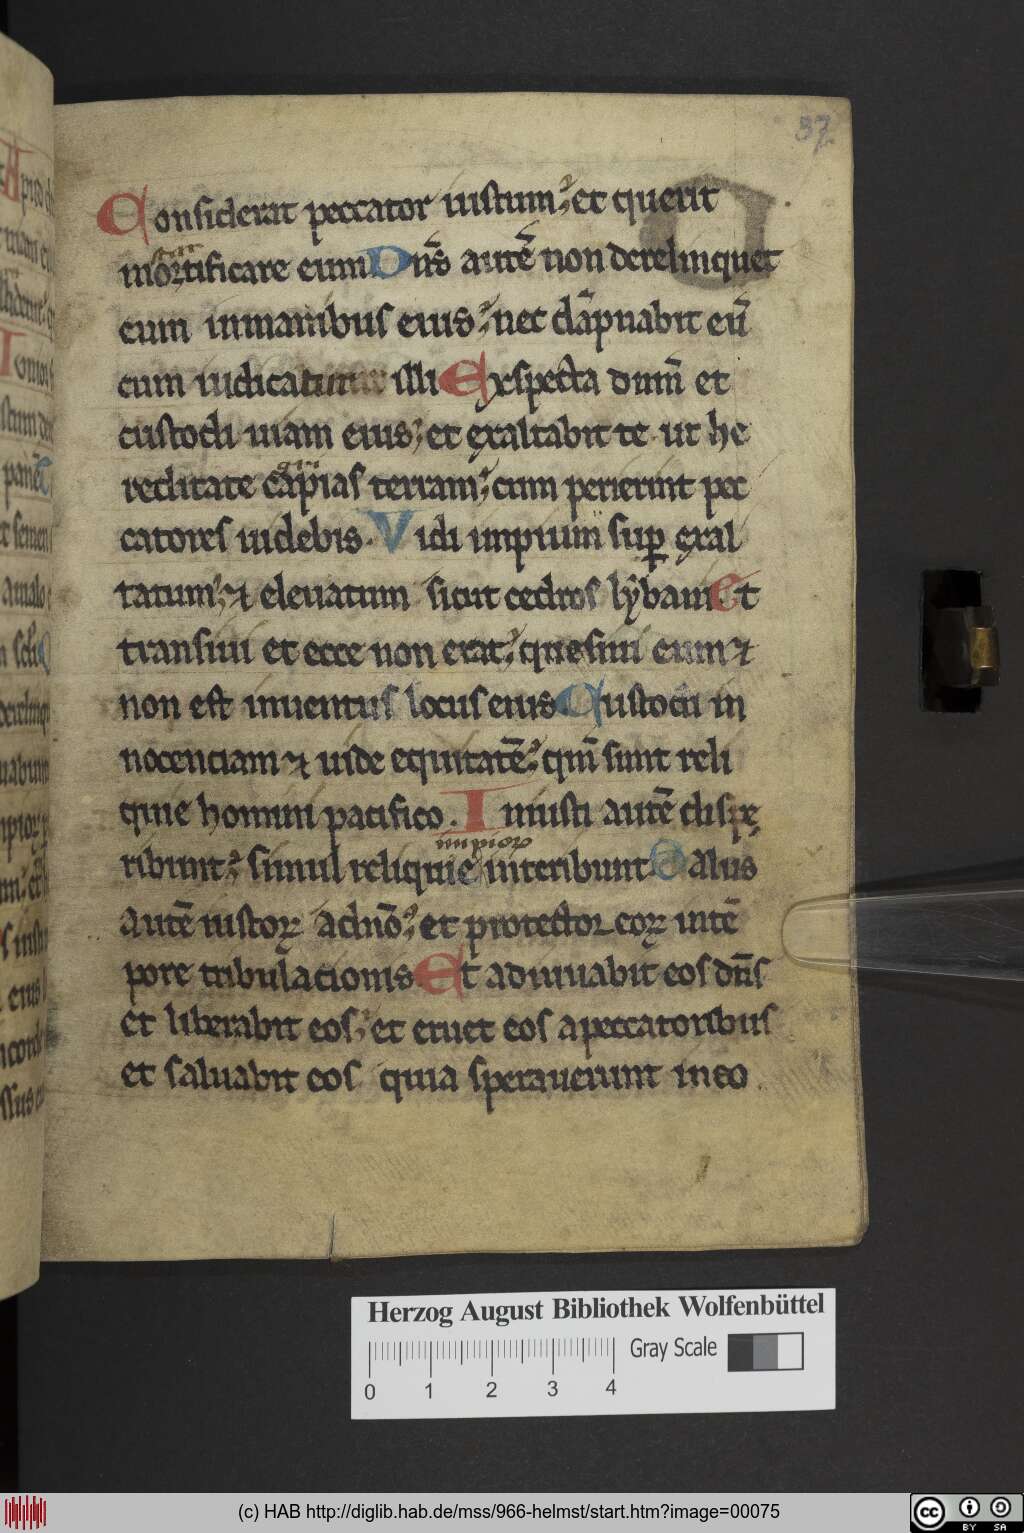 37
Considerat peccator iustum; et querit
mortificare eum Dn̄s autē non derelinquet
eum inmanibus eius; nec dāpnabit eū
cum iudicabitur illi Exspecta dnm̄ et
custodi uiam eius; et ęxaltabit te ut he
reditate capias terram; cum perierint pec
catores uidebis. Vidi impium suꝑ ęxal
tatum; ⁊ eleuatum sicut cedros lẏbani. Et
transiui et ecce non erat; quesiui eum ⁊
non est inuentus locus eius Custodi in
nocenciam ⁊ uide equitatē; qm̄ sunt reli
quie homini pacifico. Iniusti autē dispe
impioꝝ
ribunt; simul reliquie interibunt Salus
autē iustoꝝ adnō; et protector eoꝝ intē
pore tribulacionis Et adiuuabit eos dn̄s
et liberabit eos; et eruet eos apeccatoribus
et saluabit eos quia sperauerunt ineo
Herzog August Bibliothek Wolfenbüttel
Gray Scale
0 1 2 3 4
(c) HAB http://diglib.hab.de/mss/966-helmst/start.htm?image=00075
cc BY SA